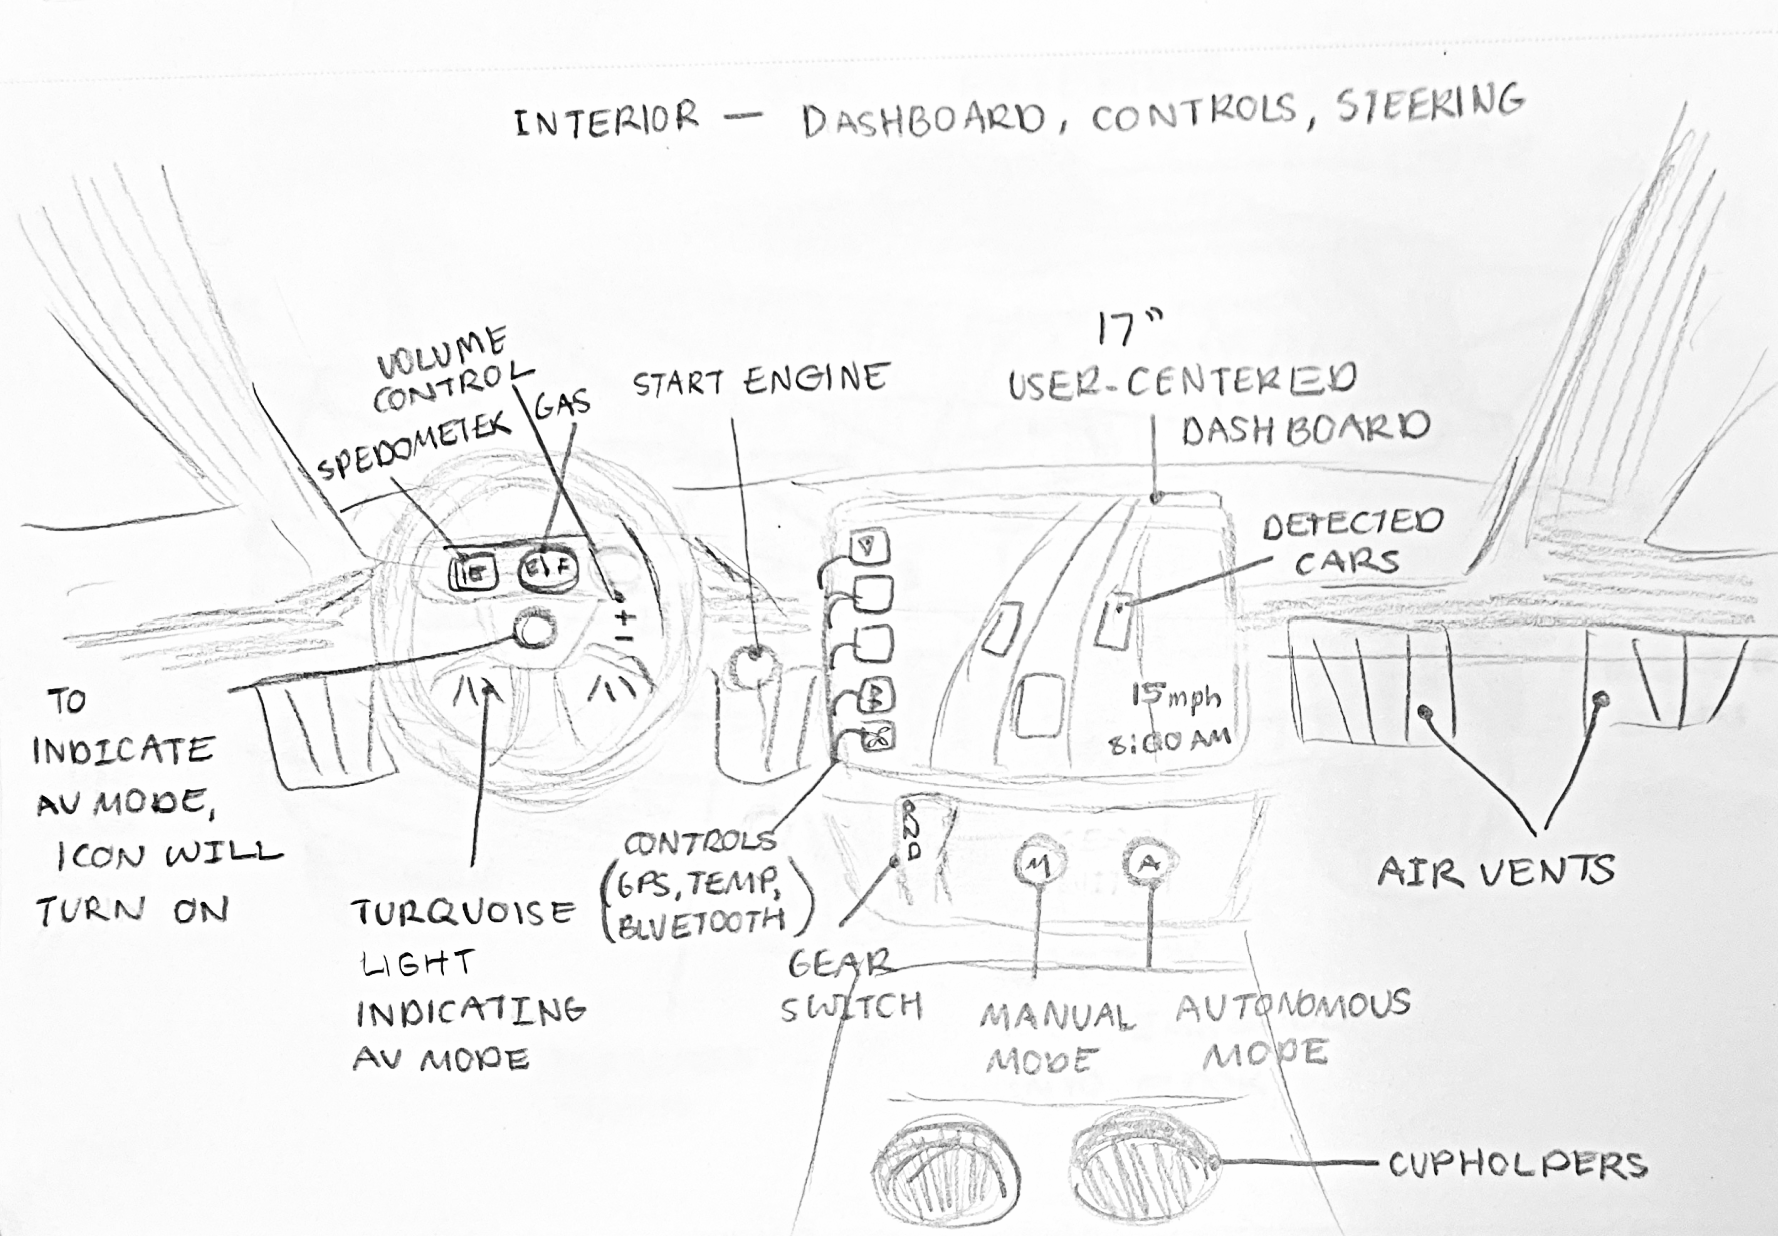 INTERIOR — DASHBOARD, CONTROLS, STEERING
17"
USER-CENTERED
DASHBOARD
VOLUME
CONTROL
SPEDOMETER
GAS
START ENGINE
DETECTED
CARS
E F
+
-
15mph
8:00 AM
TO
INDICATE
AV MODE,
ICON WILL
TURN ON
TURQUOISE
LIGHT
INDICATING
AV MODE
CONTROLS
(GPS, TEMP,
BLUETOOTH)
GEAR
SWITCH
M
A
MANUAL
MODE
AUTONOMOUS
MODE
AIR VENTS
CUPHOLDERS